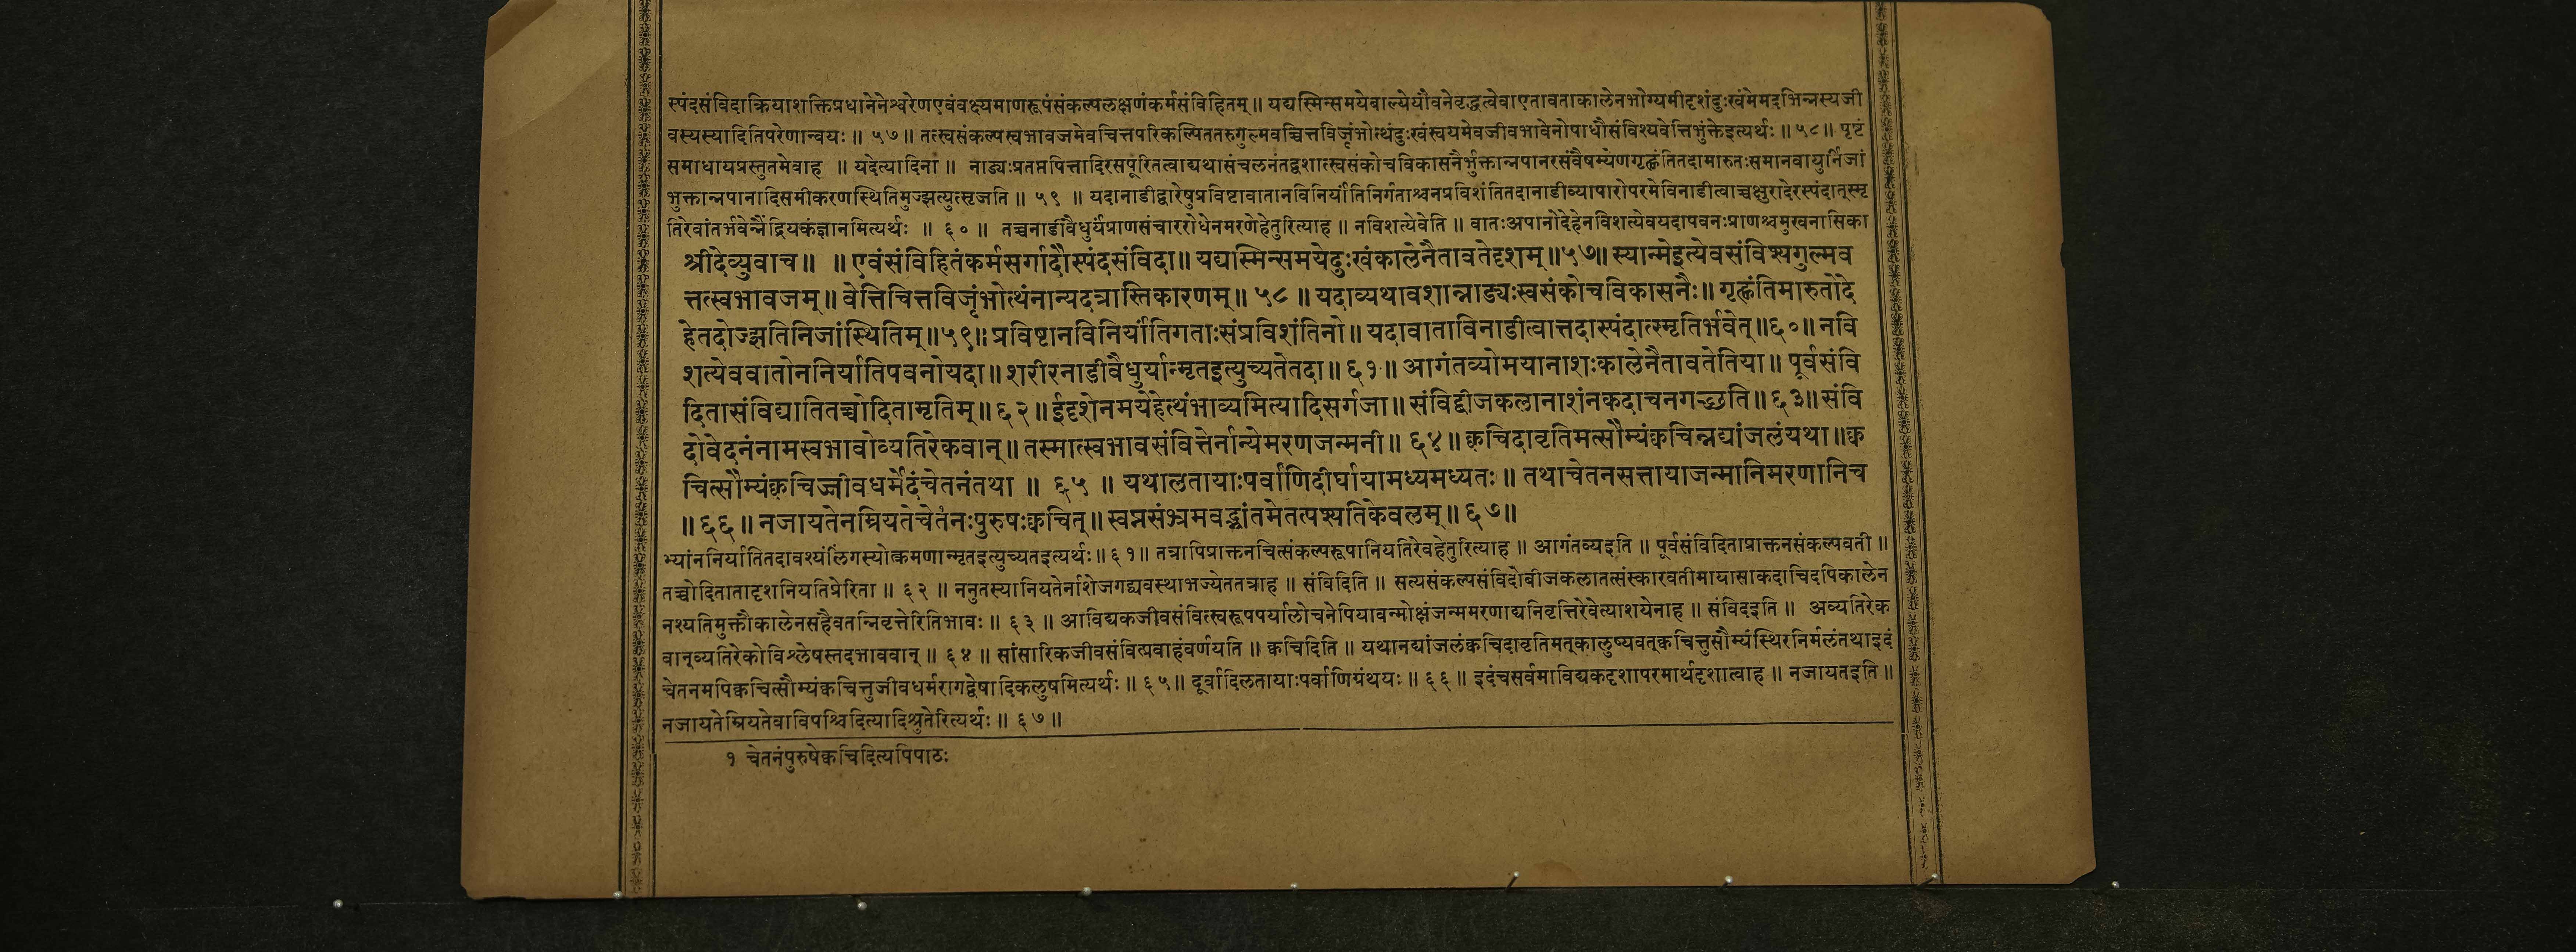 स्पंदसंविदाक्रियाशक्तिप्रधानेनेश्वरेणएवंवक्ष्यमाणरूपंसंकल्पलक्षणंकर्मसंविहितम् ॥ यद्यस्मिन्समयेबाल्येयौवनेवृद्धत्वेवाएतावताकालेनभोग्यमीदृशंदुःखंमेमदभिन्नस्यजी
वस्यस्यादितिपरेणान्वयः ॥ ५७ ॥ तत्स्वसंकल्पस्वभावजमेवचित्तपरिकल्पिततरुगुल्मवच्चित्तविजृंभोत्थंदुःखंस्वयमेवजीवभावेनोपाधौसंविश्यवेत्तिभुंक्तेइत्यर्थः ॥ ५८ ॥ पृष्टं
समाधायप्रस्तुतमेवाह ॥ यदेत्यादिना ॥ नाड्यःप्रतप्तपित्तादिरसपूरितत्वाद्यथासंचलनंतद्वशात्स्वसंकोचविकासनैर्भुक्तान्नपानरसंवैषम्येणगृह्णंतितदामारुतःसमानवायुर्निजां
भुक्तान्नपानादिसमीकरणस्थितिमुज्झत्युत्सृजति ॥ ५९ ॥ यदानाडीद्वारेषुप्रविष्टावातानविनिर्यांतिनिर्गताश्चनप्रविशंतितदानाडीव्यापारोपरमेविनाडीत्वाच्चक्षुरादेरस्पंदात्स्मृ
तिरेवांतर्भवेन्नैंद्रियकंज्ञानमित्यर्थः ॥ ६० ॥ तच्चनाडीवैधुर्यंप्राणसंचाररोधेनमरणेहेतुरित्याह ॥ नविशत्येवेति ॥ वातःअपानोदेहेनविशत्येवयदापवनःप्राणश्चमुखनासिका
श्रीदेव्युवाच ॥ ॥ एवंसंविहितंकर्मसर्गादौस्पंदसंविदा ॥ यद्यस्मिन्समयेदुःखंकालेनैतावतेदृशम् ॥ ५७ ॥ स्यान्मेइत्येवसंविश्यगुल्मव
त्तत्स्वभावजम् ॥ वेत्तिचित्तविजृंभोत्थंनान्यदत्रास्तिकारणम् ॥ ५८ ॥ यदाव्यथावशान्नाड्यःस्वसंकोचविकासनैः ॥ गृह्णंतिमारुतोदे
हेतदोज्झतिनिजांस्थितिम् ॥ ५९ ॥ प्रविष्टानविनिर्यांतिगताःसंप्रविशंतिनो ॥ यदावाताविनाडीत्वात्तदास्पंदात्स्मृतिर्भवेत् ॥ ६० ॥ नवि
शत्येववातोननिर्यातिपवनोयदा ॥ शरीरनाडीवैधुर्यान्मृतइत्युच्यतेतदा ॥ ६१ ॥ आगंतव्योमयानाशःकालेनैतावतेतिया ॥ पूर्वसंवि
दितासंविद्यातितच्चोदितामृतिम् ॥ ६२ ॥ ईदृशेनमयेहेत्थंभाव्यमित्यादिसर्गजा ॥ संविद्बीजकलानाशंनकदाचनगच्छति ॥ ६३ ॥ संवि
दोवेदनंनामस्वभावोव्यतिरेकवान् ॥ तस्मात्स्वभावसंवित्तेर्नान्येमरणजन्मनी ॥ ६४ ॥ क्वचिदावृतिमत्सौम्यंक्वचिन्नद्यांजलंयथा ॥ क्व
चित्सौम्यंक्वचिज्जीवधर्मेदंचेतनंतथा ॥ ६५ ॥ यथालतायाःपर्वाणिदीर्घायामध्यमध्यतः ॥ तथाचेतनसत्तायाजन्मानिमरणानिच
॥ ६६ ॥ नजायतेनम्रियतेचेतनःपुरुषःक्वचित् ॥ स्वप्नसंभ्रमवद्भ्रांतमेतत्पश्यतिकेवलम् ॥ ६७ ॥
भ्यांननिर्यातितदावश्यंलिंगस्योत्क्रमणान्मृतइत्युच्यतइत्यर्थः ॥ ६१ ॥ तत्रापिप्राक्तनचित्संकल्परूपानियतिरेवहेतुरित्याह ॥ आगंतव्यइति ॥ पूर्वसंविदिताप्राक्तनसंकल्पवती ॥
तच्चोदितातादृशनियतिप्रेरिता ॥ ६२ ॥ ननुतस्यानियतेर्नाशेजगद्व्यवस्थाभज्येततत्राह ॥ संविदिति ॥ सत्यसंकल्पसंविदोबीजकलातत्संस्कारवतीमायासाकदाचिदपिकालेन
नश्यतिमुक्तौकालेनसहैवतन्निवृत्तेरितिभावः ॥ ६३ ॥ आविद्यकजीवसंवित्स्वरूपपर्यालोचनेपियावन्मोक्षंजन्ममरणाद्यनिवृत्तिरेवेत्याशयेनाह ॥ संविदइति ॥ अव्यतिरेक
वान्व्यतिरेकोविश्लेषस्तदभाववान् ॥ ६४ ॥ सांसारिकजीवसंवित्प्रवाहंवर्णयति ॥ क्वचिदिति ॥ यथानद्यांजलंक्वचिदावृतिमत्कालुष्यवत्क्वचित्तुसौम्यंस्थिरनिर्मलंतथाइदं
चेतनमपिक्वचित्सौम्यंक्वचित्तुजीवधर्मरागद्वेषादिकलुषमित्यर्थः ॥ ६५ ॥ दूर्वादिलतायाःपर्वाणिग्रंथयः ॥ ६६ ॥ इदंचसर्वमाविद्यकदृशापरमार्थदृशात्वाह ॥ नजायतइति ॥
नजायतेम्रियतेवाविपश्चिदित्यादिश्रुतेरित्यर्थः ॥ ६७ ॥
१ चेतनंपुरुषेक्वचिदित्यपिपाठः